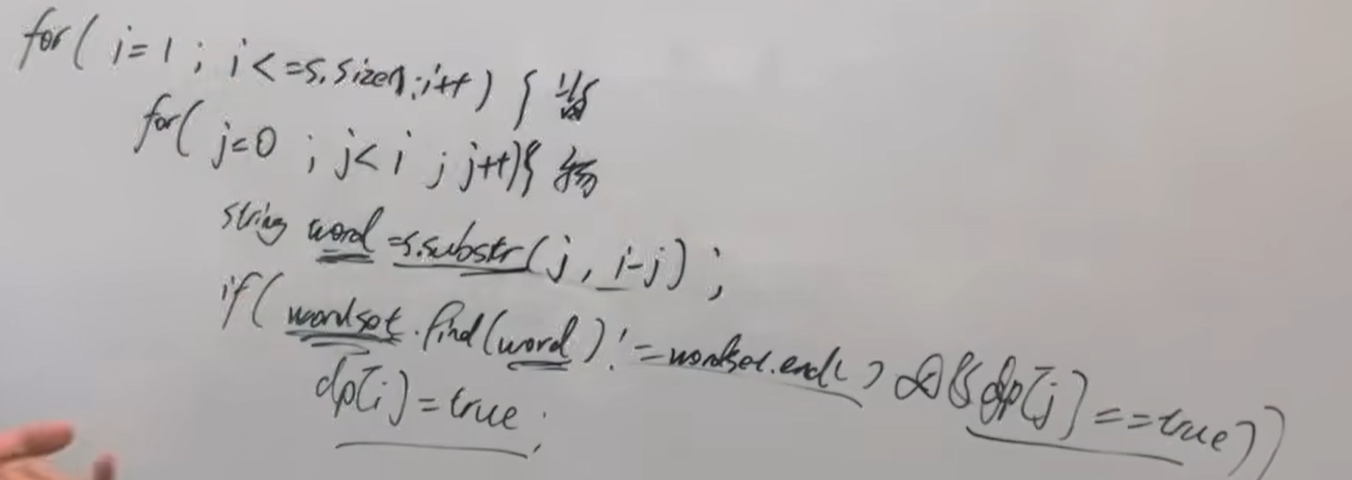 for( i=1 ; i<=s.size(); i++) { 背包
for( j=0 ; j<i ; j++){ 物
string word =s.substr(j, i-j) ;
if( wordset.find(word) != wordset.end() && dp[j]==true))
dp[i]=true;